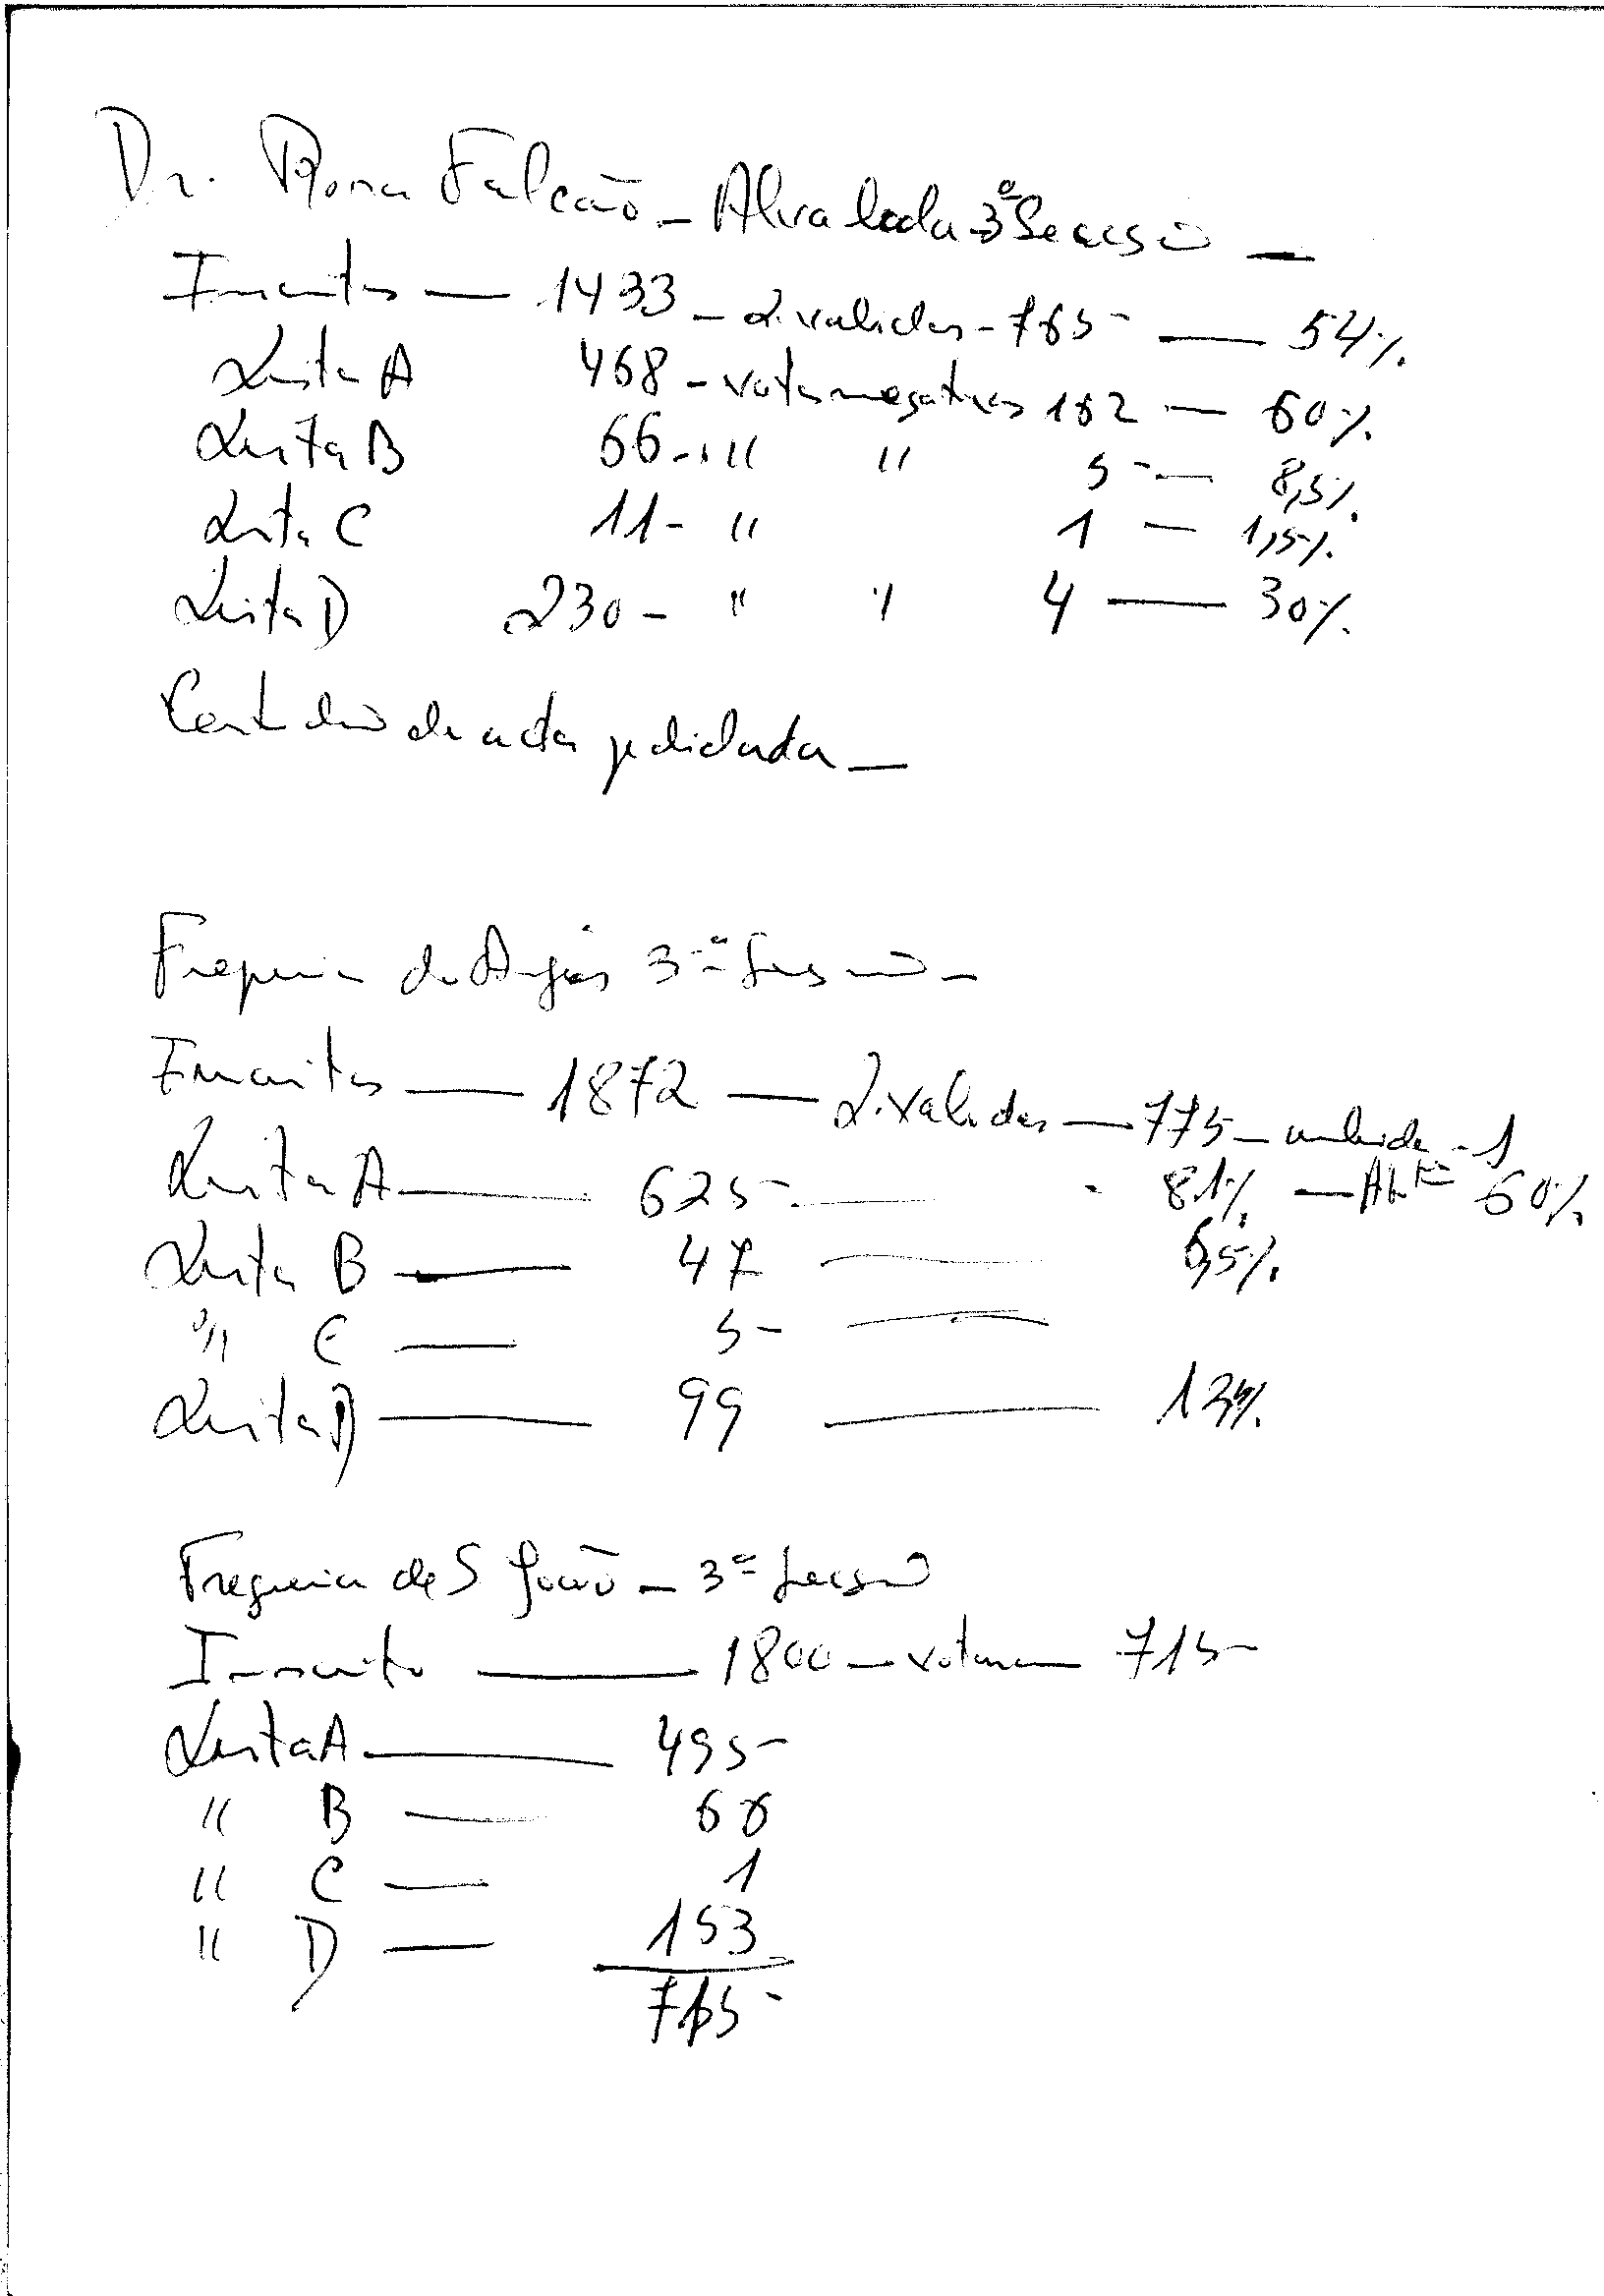 Dr. Falcão - Alvalade 3ª Secção -
Inscritos - 1433 - L. validas - 765 - 54%
Lista A 468 - votos negativos 162 - 60%
Lista B 66 - " " 5 - 8,5%
Lista C 11 - " 1 - 1,5%
Lista D 230 - " " 4 - 30%
Certidão de acta pedida -
Freguesia de Anjos 3ª Secção -
Inscritos - 1872 - L. validas - 775 - 1
Lista A - 625 - 81% - Abst 60%
Lista B - 47 - 6,5%
" C - 5 -
Lista D - 99 -
Freguesia de S. João - 3ª Secção
Inscrito - 1800 - votaram 715
Lista A - 495
" B - 66
" C - 1
" D - 153
715